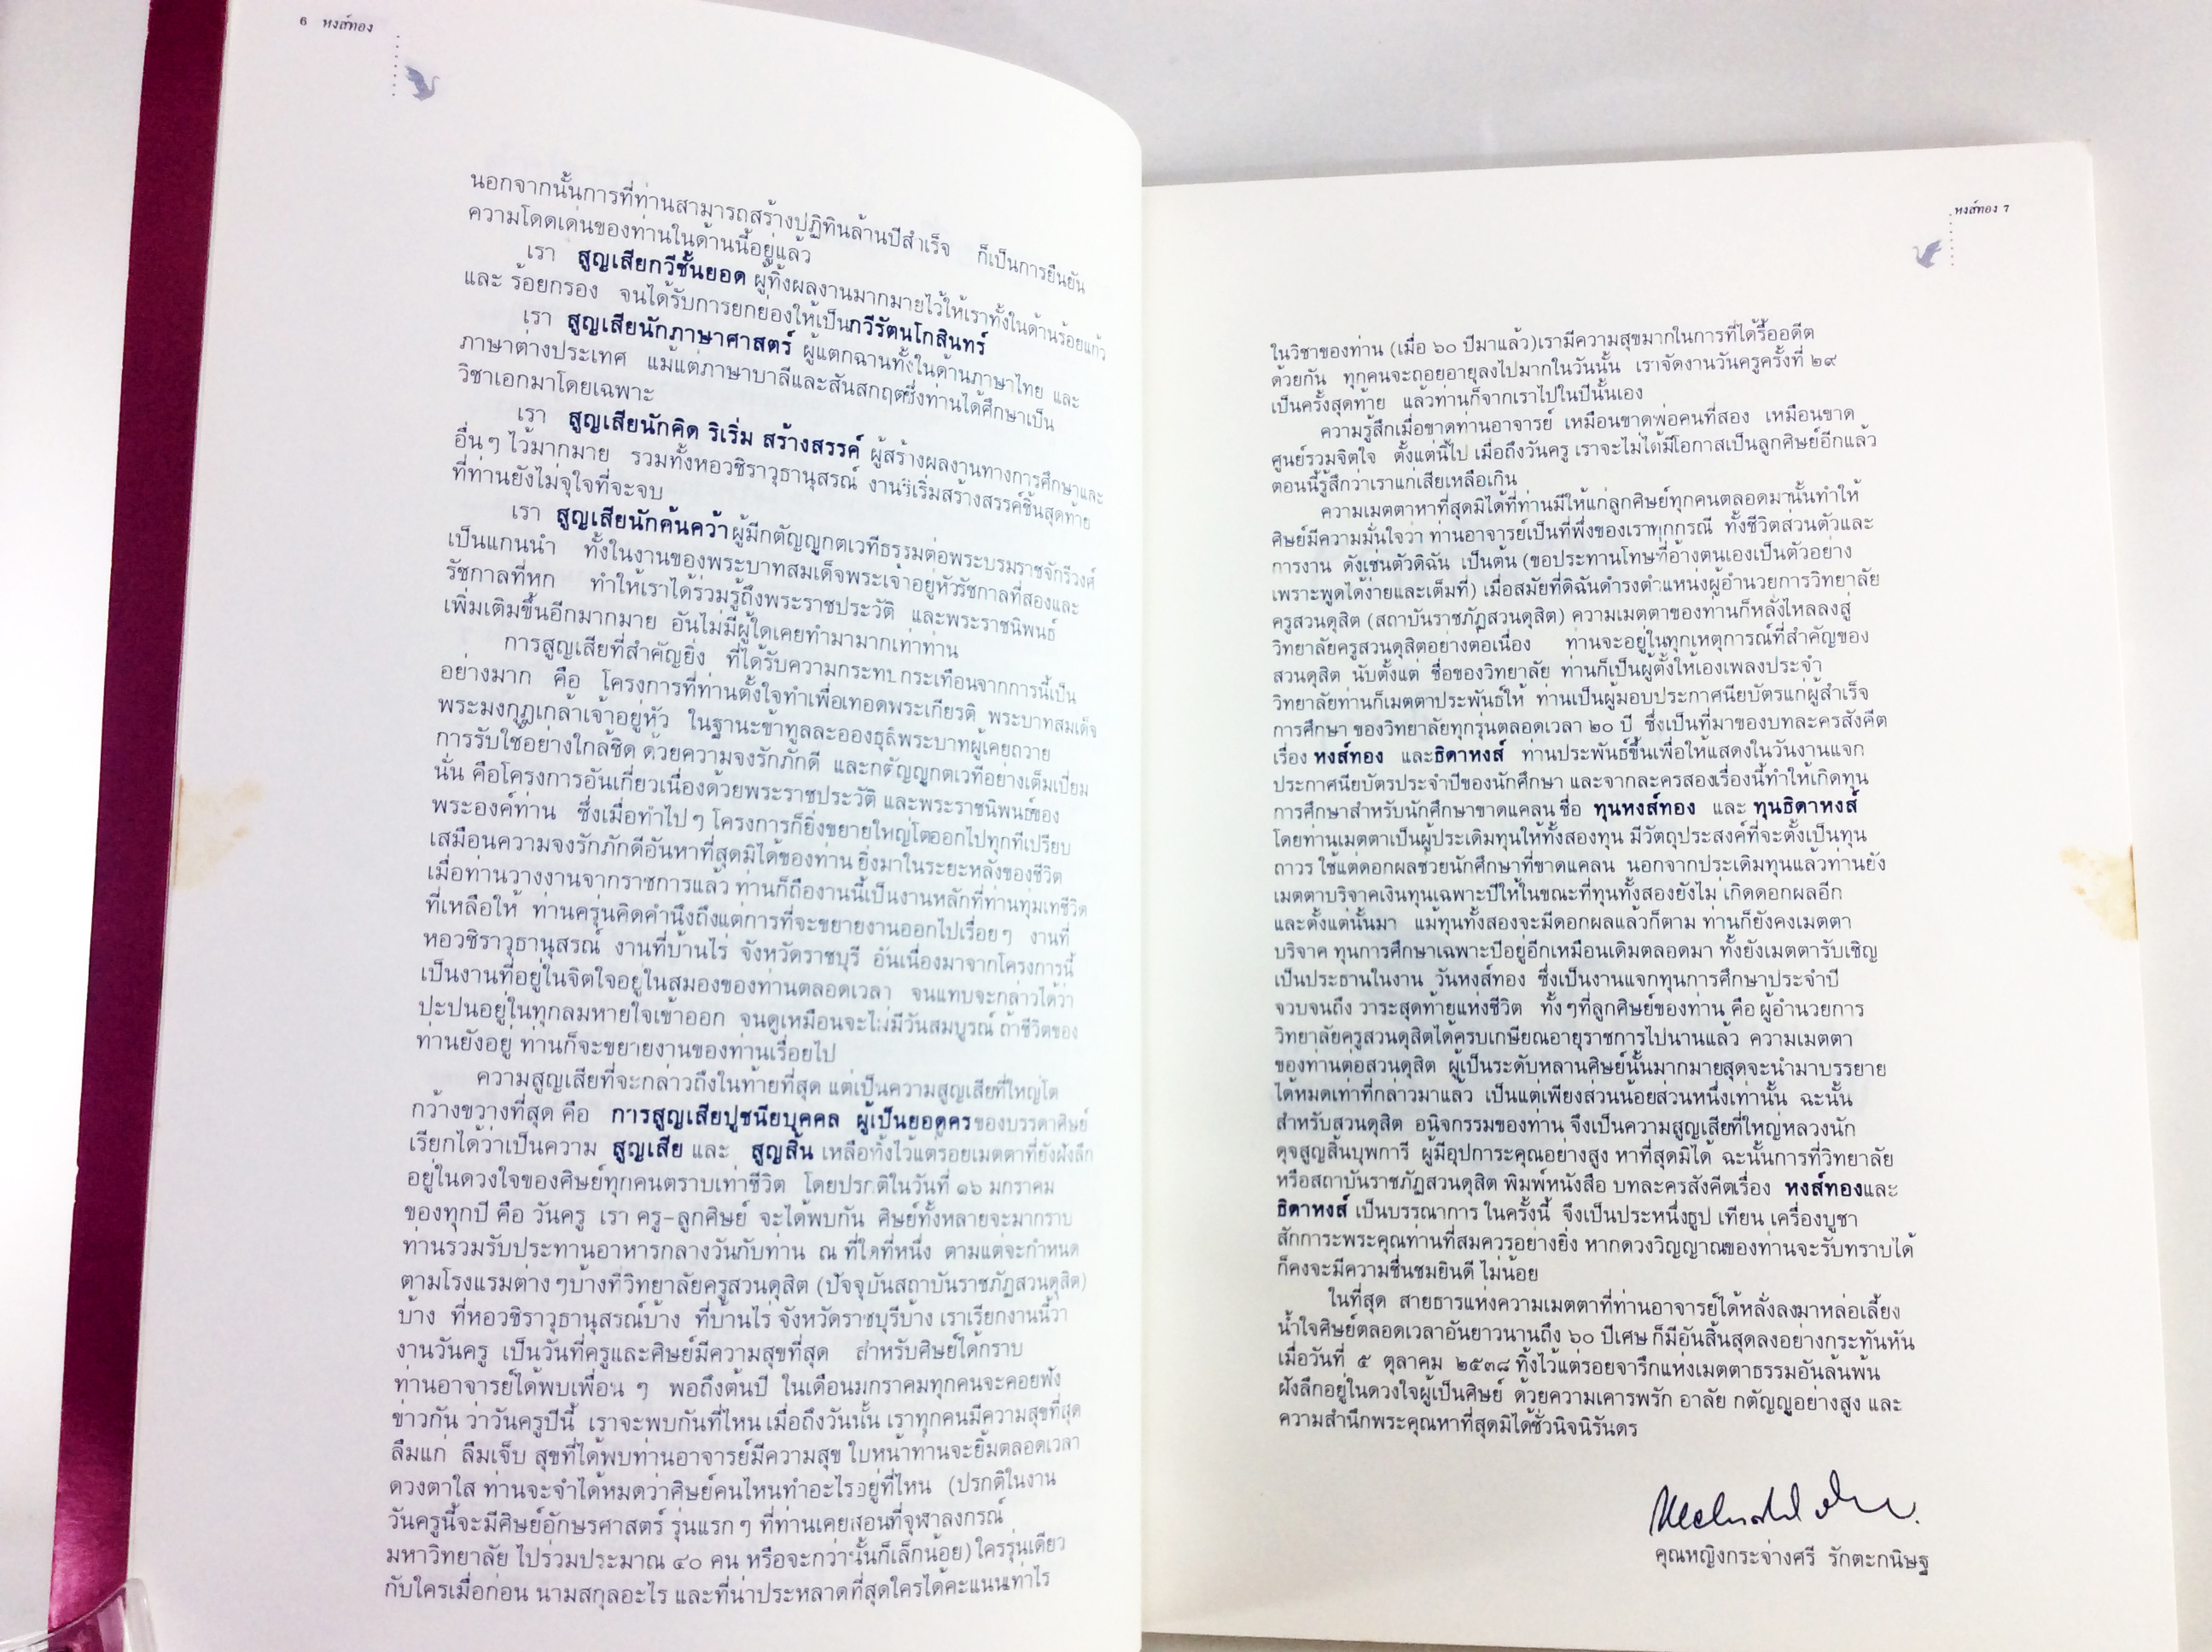 6 หงส์ทอง
นอกจากนั้นการที่ท่านสามารถสร้างปฏิทินล้านปีสำเร็จ ก็เป็นการยืนยัน
ความโดดเด่นของท่านในด้านนี้อยู่แล้ว
เรา สูญเสียกวีชั้นยอด ผู้ทิ้งผลงานมากมายไว้ให้เราทั้งในด้านร้อยแก้ว
และ ร้อยกรอง จนได้รับการยกย่องให้เป็นกวีรัตนโกสินทร์
เรา สูญเสียนักภาษาศาสตร์ ผู้แตกฉานทั้งในด้านภาษาไทย และ
ภาษาต่างประเทศ แม้แต่ภาษาบาลีและสันสกฤตซึ่งท่านได้ศึกษาเป็น
วิชาเอกมาโดยเฉพาะ
เรา สูญเสียนักคิด ริเริ่ม สร้างสรรค์ ผู้สร้างผลงานทางการศึกษาและ
อื่นๆ ไว้มากมาย รวมทั้งหอวชิราวุธานุสรณ์ งานริเริ่มสร้างสรรค์ชิ้นสุดท้าย
ที่ท่านยังไม่จุใจที่จะจบ
เรา สูญเสียนักค้นคว้าผู้มีกตัญญูกตเวทีธรรมต่อพระบรมราชจักรีวงศ์
เป็นแกนนำ ทั้งในงานของพระบาทสมเด็จพระเจ้าอยู่หัวรัชกาลที่สองและ
รัชกาลที่หก ทำให้เราได้ร่วมรู้ถึงพระราชประวัติ และพระราชนิพนธ์
เพิ่มเติมขึ้นอีกมากมาย อันไม่มีผู้ใดเคยทำมามากเท่าท่าน
การสูญเสียที่สำคัญยิ่ง ที่ได้รับความกระทบกระเทือนจากการนี้เป็น
อย่างมาก คือ โครงการที่ท่านตั้งใจทำเพื่อเทอดพระเกียรติ พระบาทสมเด็จ
พระมงกุฎเกล้าเจ้าอยู่หัว ในฐานะข้าทูลละอองธุลีพระบาทผู้เคยถวาย
การรับใช้อย่างใกล้ชิด ด้วยความจงรักภักดี และกตัญญูกตเวทีอย่างเต็มเปี่ยม
นั่น คือโครงการอันเกี่ยวเนื่องด้วยพระราชประวัติ และพระราชนิพนธ์ของ
พระองค์ท่าน ซึ่งเมื่อทำไปๆ โครงการก็ยิ่งขยายใหญ่โตออกไปทุกทีเปรียบ
เสมือนความจงรักภักดีอันหาที่สุดมิได้ของท่าน ยิ่งมาในระยะหลังของชีวิต
เมื่อท่านวางงานจากราชการแล้ว ท่านก็ถืองานนี้เป็นงานหลักที่ท่านทุ่มเทชีวิต
ที่เหลือให้ ท่านครุ่นคิดคำนึงถึงแต่การที่จะขยายงานออกไปเรื่อยๆ งานที่
หอวชิราวุธานุสรณ์ งานที่บ้านไร่ จังหวัดราชบุรี อันเนื่องมาจากโครงการนี้
เป็นงานที่อยู่ในจิตใจอยู่ในสมองของท่านตลอดเวลา จนแทบจะกล่าวได้ว่า
ปะปนอยู่ในทุกลมหายใจเข้าออก จนดูเหมือนจะไม่มีวันสมบูรณ์ ถ้าชีวิตของ
ท่านยังอยู่ ท่านก็จะขยายงานของท่านเรื่อยไป
ความสูญเสียที่จะกล่าวถึงในท้ายที่สุด แต่เป็นความสูญเสียที่ใหญ่โต
กว้างขวางที่สุด คือ การสูญเสียปูชนียบุคคล ผู้เป็นยอดครูของบรรดาศิษย์
เรียกได้ว่าเป็นความ สูญเสีย และ สูญสิ้น เหลือทิ้งไว้แต่รอยเมตตาที่ยังฝังลึก
อยู่ในดวงใจของศิษย์ทุกคนตราบเท่าชีวิต โดยปรกติในวันที่ ๑๖ มกราคม
ของทุกปี คือ วันครู เรา ครู-ลูกศิษย์ จะได้พบกัน ศิษย์ทั้งหลายจะมากราบ
ท่านรวมรับประทานอาหารกลางวันกับท่าน ณ ที่ใดที่หนึ่ง ตามแต่จะกำหนด
ตามโรงแรมต่างๆบ้างที่วิทยาลัยครูสวนดุสิต (ปัจจุบันสถาบันราชภัฏสวนดุสิต)
บ้าง ที่หอวชิราวุธานุสรณ์บ้าง ที่บ้านไร่ จังหวัดราชบุรีบ้าง เราเรียกงานนี้ว่า
งานวันครู เป็นวันที่ครูและศิษย์มีความสุขที่สุด สำหรับศิษย์ได้กราบ
ท่านอาจารย์ได้พบเพื่อน ๆ พอถึงต้นปี ในเดือนมกราคมทุกคนจะคอยฟัง
ข่าวกัน ว่าวันครูปีนี้ เราจะพบกันที่ไหน เมื่อถึงวันนั้น เราทุกคนมีความสุขที่สุด
ลืมแก่ ลืมเจ็บ สุขที่ได้พบท่านอาจารย์มีความสุข ใบหน้าท่านจะยิ้มตลอดเวลา
ดวงตาใส ท่านจะจำได้หมดว่าศิษย์คนไหนทำอะไรอยู่ที่ไหน (ปรกติในงาน
วันครูนี้จะมีศิษย์อักษรศาสตร์ รุ่นแรกๆ ที่ท่านเคยสอนที่จุฬาลงกรณ์
มหาวิทยาลัย ไปร่วมประมาณ ๔๐ คน หรือจะกว่านั้นก็เล็กน้อย) ใครรุ่นเดียว
กับใครเมื่อก่อน นามสกุลอะไร และที่น่าประหลาดที่สุดใครได้คะแนนเท่าไร
หงส์ทอง 7
ในวิชาของท่าน (เมื่อ ๖๐ ปีมาแล้ว)เรามีความสุขมากในการที่ได้รื้ออดีต
ด้วยกัน ทุกคนจะถอยอายุลงไปมากในวันนั้น เราจัดงานวันครูครั้งที่ ๒๙
เป็นครั้งสุดท้าย แล้วท่านก็จากเราไปในปีนั้นเอง
ความรู้สึกเมื่อขาดท่านอาจารย์ เหมือนขาดพ่อคนที่สอง เหมือนขาด
ศูนย์รวมจิตใจ ตั้งแต่นี้ไป เมื่อถึงวันครู เราจะไม่ได้มีโอกาสเป็นลูกศิษย์อีกแล้ว
ตอนนี้รู้สึกว่าเราแก่เสียเหลือเกิน
ความเมตตาหาที่สุดมิได้ที่ท่านมีให้แก่ลูกศิษย์ทุกคนตลอดมานั้นทำให้
ศิษย์มีความมั่นใจว่า ท่านอาจารย์เป็นที่พึ่งของเราทุกกรณี ทั้งชีวิตส่วนตัวและ
การงาน ดังเช่นตัวดิฉัน เป็นต้น (ขอประทานโทษที่อ้างตนเองเป็นตัวอย่าง
เพราะพูดได้ง่ายและเต็มที่) เมื่อสมัยที่ดิฉันดำรงตำแหน่งผู้อำนวยการวิทยาลัย
ครูสวนดุสิต (สถาบันราชภัฏสวนดุสิต) ความเมตตาของท่านก็หลั่งไหลลงสู่
วิทยาลัยครูสวนดุสิตอย่างต่อเนื่อง ท่านจะอยู่ในทุกเหตุการณ์ที่สำคัญของ
สวนดุสิต นับตั้งแต่ ชื่อของวิทยาลัย ท่านก็เป็นผู้ตั้งให้เองเพลงประจำ
วิทยาลัยท่านก็เมตตาประพันธ์ให้ ท่านเป็นผู้มอบประกาศนียบัตรแก่ผู้สำเร็จ
การศึกษา ของวิทยาลัยทุกรุ่นตลอดเวลา ๒๐ ปี ซึ่งเป็นที่มาของบทละครสังคีต
เรื่อง หงส์ทอง และธิดาหงส์ ท่านประพันธ์ขึ้นเพื่อให้แสดงในวันงานแจก
ประกาศนียบัตรประจำปีของนักศึกษา และจากละครสองเรื่องนี้ทำให้เกิดทุน
การศึกษาสำหรับนักศึกษาขาดแคลน ชื่อ ทุนหงส์ทอง และ ทุนธิดาหงส์
โดยท่านเมตตาเป็นผู้ประเดิมทุนให้ทั้งสองทุน มีวัตถุประสงค์ที่จะตั้งเป็นทุน
ถาวร ใช้แต่ดอกผลช่วยนักศึกษาที่ขาดแคลน นอกจากประเดิมทุนแล้วท่านยัง
เมตตาบริจาคเงินทุนเฉพาะปีให้ในขณะที่ทุนทั้งสองยังไม่ เกิดดอกผลอีก
และตั้งแต่นั้นมา แม้ทุนทั้งสองจะมีดอกผลแล้วก็ตาม ท่านก็ยังคงเมตตา
บริจาค ทุนการศึกษาเฉพาะปีอยู่อีกเหมือนเดิมตลอดมา ทั้งยังเมตตารับเชิญ
เป็นประธานในงาน วันหงส์ทอง ซึ่งเป็นงานแจกทุนการศึกษาประจำปี
จวบจนถึง วาระสุดท้ายแห่งชีวิต ทั้งๆที่ลูกศิษย์ของท่าน คือ ผู้อำนวยการ
วิทยาลัยครูสวนดุสิตได้ครบเกษียณอายุราชการไปนานแล้ว ความเมตตา
ของท่านต่อสวนดุสิต ผู้เป็นระดับหลานศิษย์นั้นมากมายสุดจะนำมาบรรยาย
ได้หมดเท่าที่กล่าวมาแล้ว เป็นแต่เพียงส่วนน้อยส่วนหนึ่งเท่านั้น ฉะนั้น
สำหรับสวนดุสิต อนิจกรรมของท่าน จึงเป็นความสูญเสียที่ใหญ่หลวงนัก
ดุจสูญสิ้นบุพการี ผู้มีอุปการะคุณอย่างสูง หาที่สุดมิได้ ฉะนั้นการที่วิทยาลัย
หรือสถาบันราชภัฏสวนดุสิต พิมพ์หนังสือ บทละครสังคีตเรื่อง หงส์ทองและ
ธิดาหงส์ เป็นบรรณาการ ในครั้งนี้ จึงเป็นประหนึ่งธูป เทียน เครื่องบูชา
สักการะพระคุณท่านที่สมควรอย่างยิ่ง หากดวงวิญญาณของท่านจะรับทราบได้
ก็คงจะมีความชื่นชมยินดี ไม่น้อย
ในที่สุด สายธารแห่งความเมตตาที่ท่านอาจารย์ได้หลั่งลงมาหล่อเลี้ยง
น้ำใจศิษย์ตลอดเวลาอันยาวนานถึง ๖๐ ปีเศษ ก็มีอันสิ้นสุดลงอย่างกระทันหัน
เมื่อวันที่ ๕ ตุลาคม ๒๕๓๘ ทิ้งไว้แต่รอยจารึกแห่งเมตตาธรรมอันล้นพ้น
ฝังลึกอยู่ในดวงใจผู้เป็นศิษย์ ด้วยความเคารพรัก อาลัย กตัญญูอย่างสูง และ
ความสำนึกพระคุณหาที่สุดมิได้ชั่วนิจนิรันดร
คุณหญิงกระจ่างศรี รักตะกนิษฐ